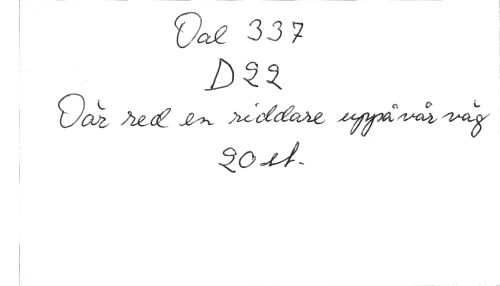 Dal 337
D22
Där red en riddare uppå vår väg
20 st.